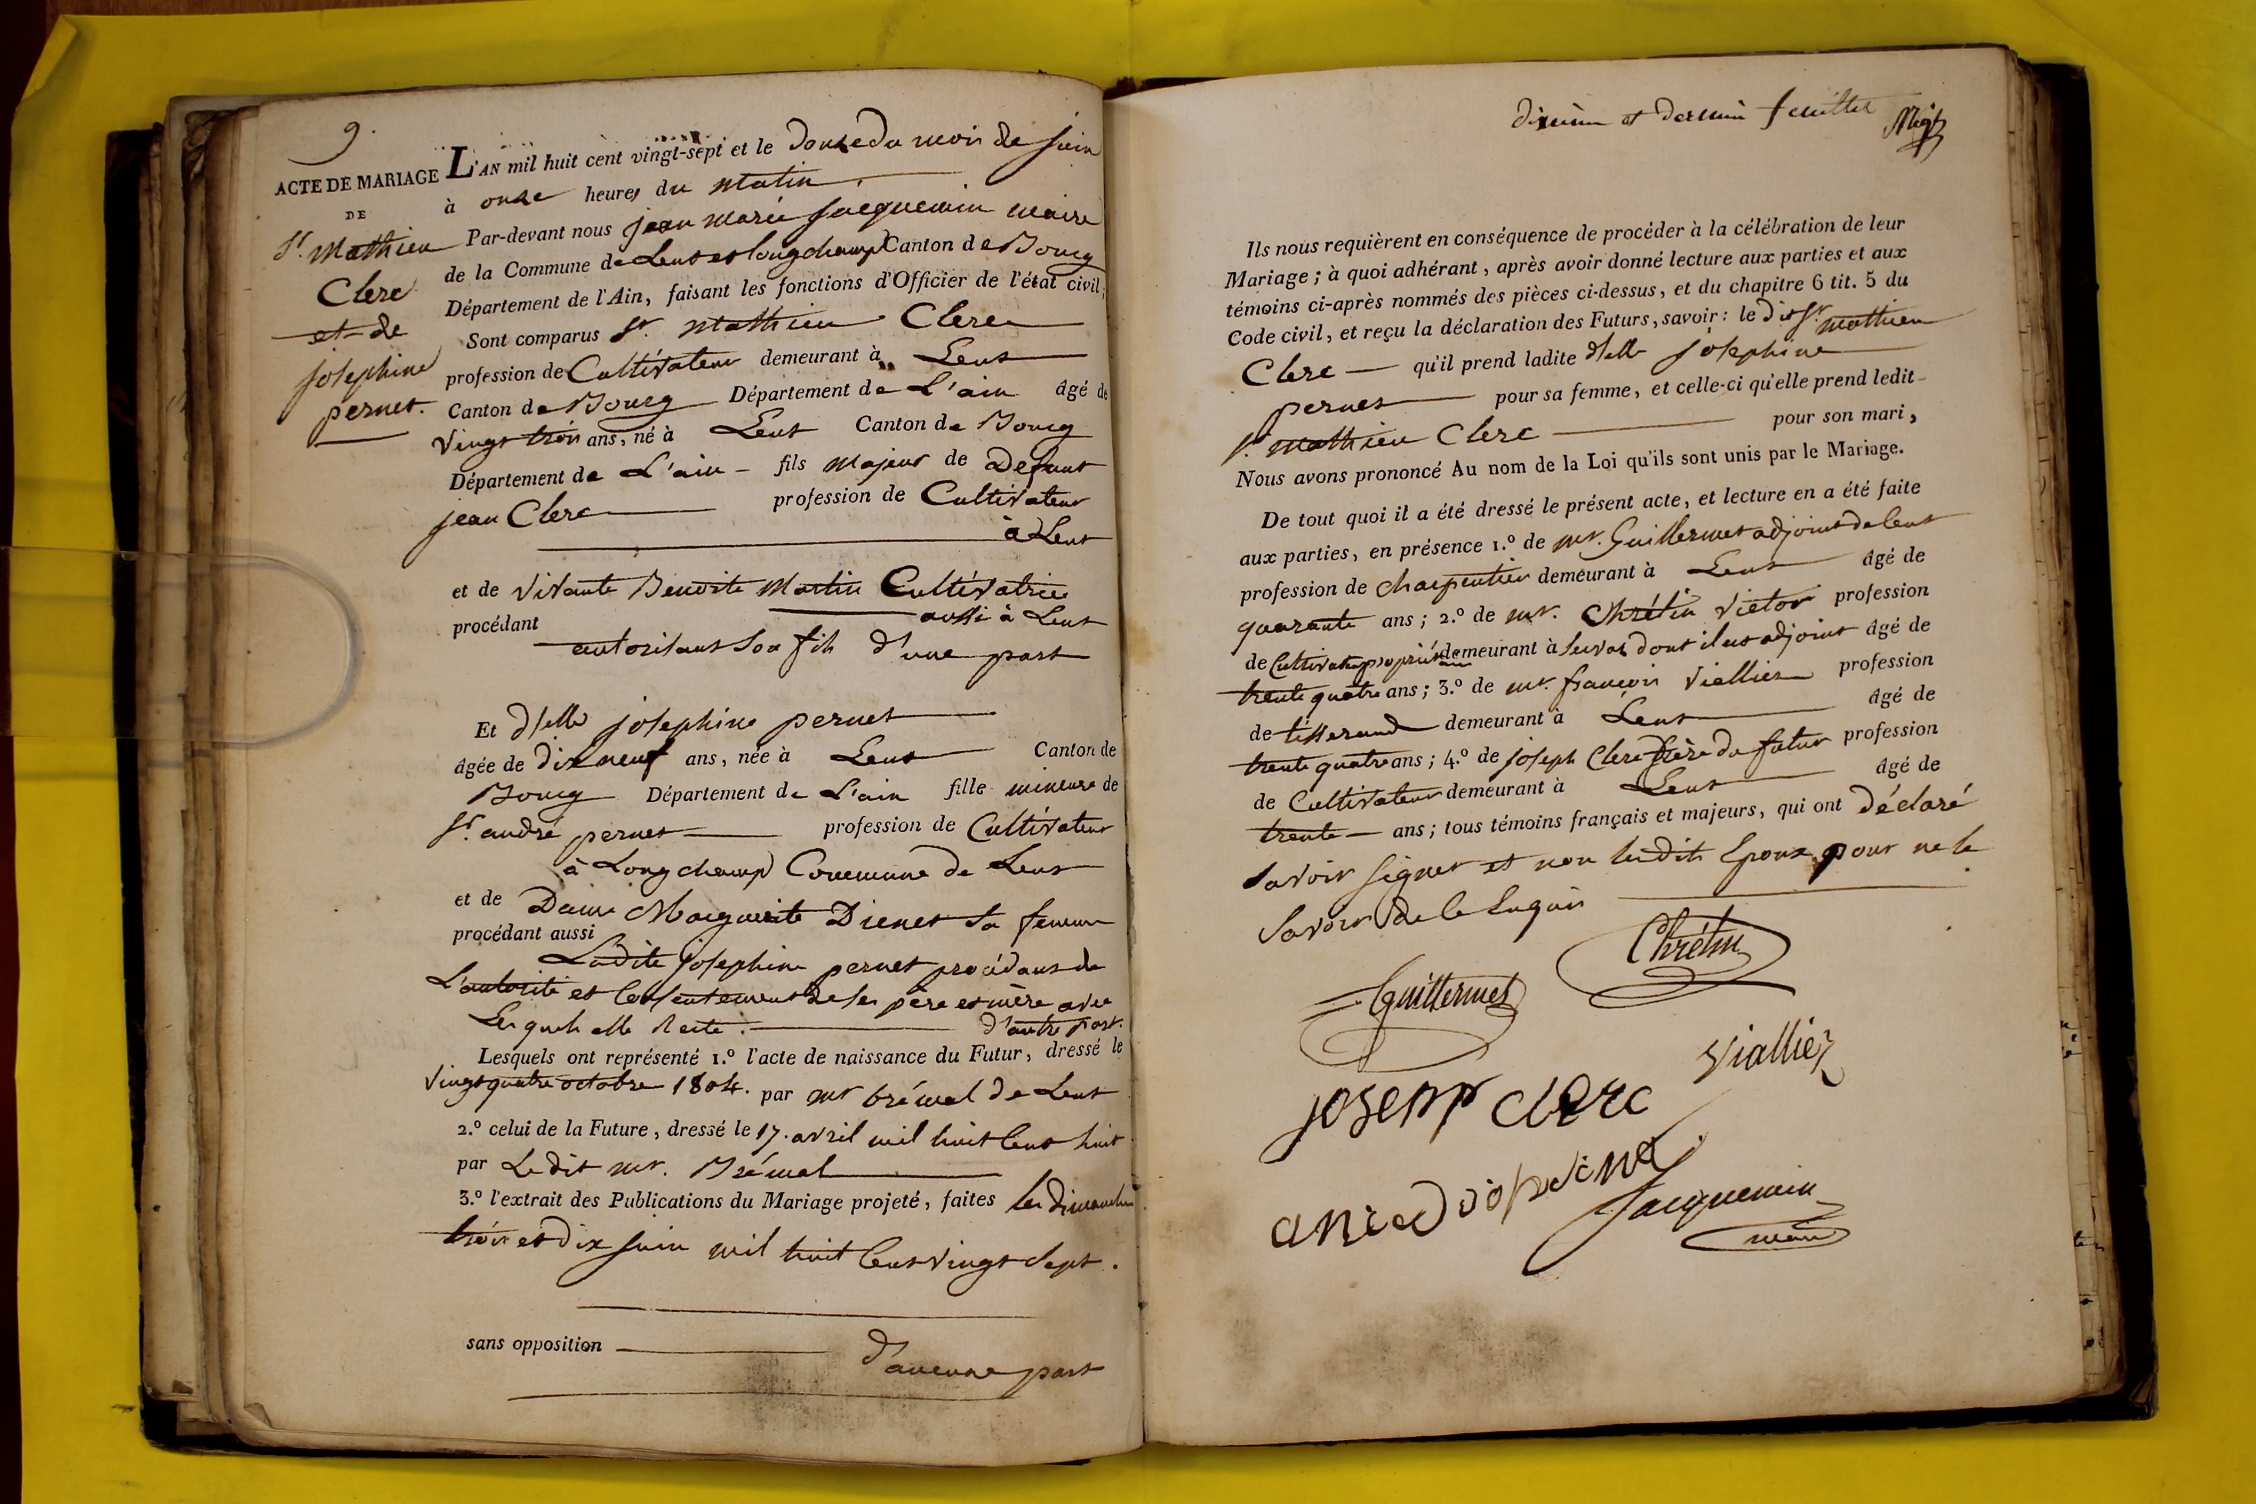 9.
ACTE DE MARIAGE
DE
Sr. Mathieu
Clerc
et de
josephine
pernet.
L'AN mil huit cent vingt-sept et le douze du mois de juin
à onze heures du matin.
Par-devant nous jean marie jacquemin maire
de la Commune de Lent et longchamp Canton de Bourg
Département de l'Ain, faisant les fonctions d'Officier de l'état civil,
Sont comparus Sr. Mathieu Clerc
profession de Cultivateur demeurant à Lent
Canton de Bourg Département de L'ain âgé de
Vingt trois ans, né à Lent Canton de Bourg
Département de L'ain - fils majeur de defunt
jean Clerc profession de Cultivateur
à Lent
et de vivante Benoite Martin Cultivatrice
procédant aussi à Lent
autorisant son fils d'une part
Et dlelle josephine pernet
âgée de dix neuf ans, née à Lent Canton de
Bourg Département de L'ain fille mineure de
Sr. andré pernet profession de Cultivateur
à Longchamp Commune de Lent
et de Dame Marguerite Dienet sa femme
procédant aussi
Ladite josephine pernet procédant de
L'autorité et consentement de ses père et mère avec
Lesquels elle Reste. d'autre part.
Lesquels ont représenté 1.º l'acte de naissance du Futur, dressé le
Vingt quatre octobre 1804. par mr brémal de Lent
2.º celui de la Future, dressé le 17. avril mil huit cent huit
par Le dit mr. Brémal
3.º l'extrait des Publications du Mariage projeté, faites les dimanches
trois et dix juin mil huit cent vingt sept.
sans opposition d'aucune part
dixième et dernier feuillet
Ils nous requièrent en conséquence de procéder à la célébration de leur
Mariage ; à quoi adhérant, après avoir donné lecture aux parties et aux
témoins ci-après nommés des pièces ci-dessus, et du chapitre 6 tit. 5 du
Code civil, et reçu la déclaration des Futurs, savoir : le dit Sr. mathieu
Clerc qu'il prend ladite dlelle josephine
pernet pour sa femme, et celle-ci qu'elle prend ledit
Sr. mathieu Clerc pour son mari,
Nous avons prononcé Au nom de la Loi qu'ils sont unis par le Mariage.
De tout quoi il a été dressé le présent acte, et lecture en a été faite
aux parties, en présence 1.º de mr. Guillermet adjoint de lent
profession de charpentier demeurant à Lent âgé de
quarante ans ; 2.º de mr. Chrétin victor profession
de Cultivateur propriétaire demeurant à Servas dont il est adjoint âgé de
trente quatre ans ; 3.º de mr. françois Viallier profession
de tisserand demeurant à Lent âgé de
trente quatre ans ; 4.º de joseph Clerc frère du futur profession
de Cultivateur demeurant à Lent âgé de
trente ans ; tous témoins français et majeurs, qui ont déclaré
savoir signer et non lesdits Epoux pour ne le
savoir de ce Enquis
Chrétin
Guillermet
Viallier
josepp clerc
Jacquemin
maire